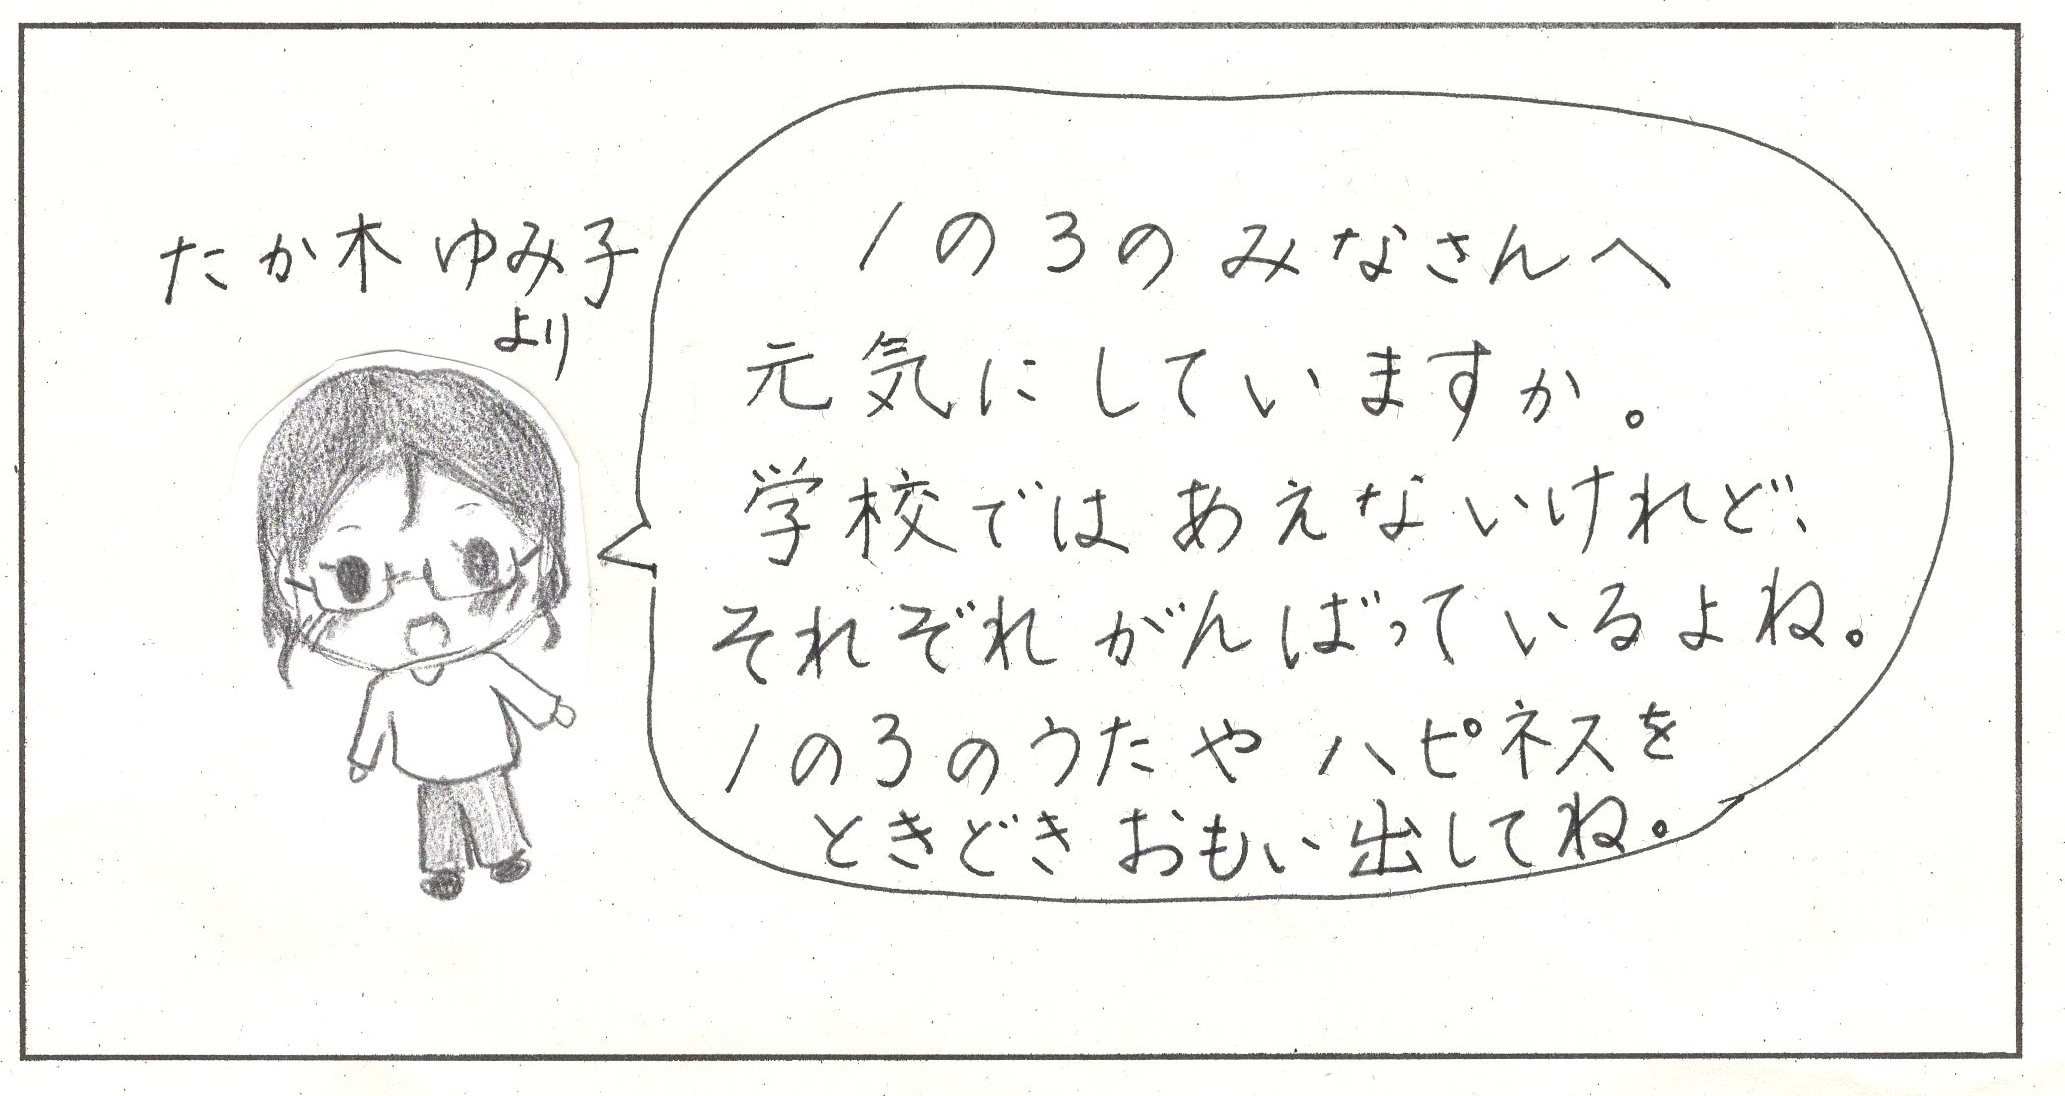 たか木 ゆみ子
より
1の3のみなさんへ
元気にしていますか。
学校ではあえないけれど、
それぞれがんばっているよね。
1の3のうたやハピネスを
ときどきおもい出してね。